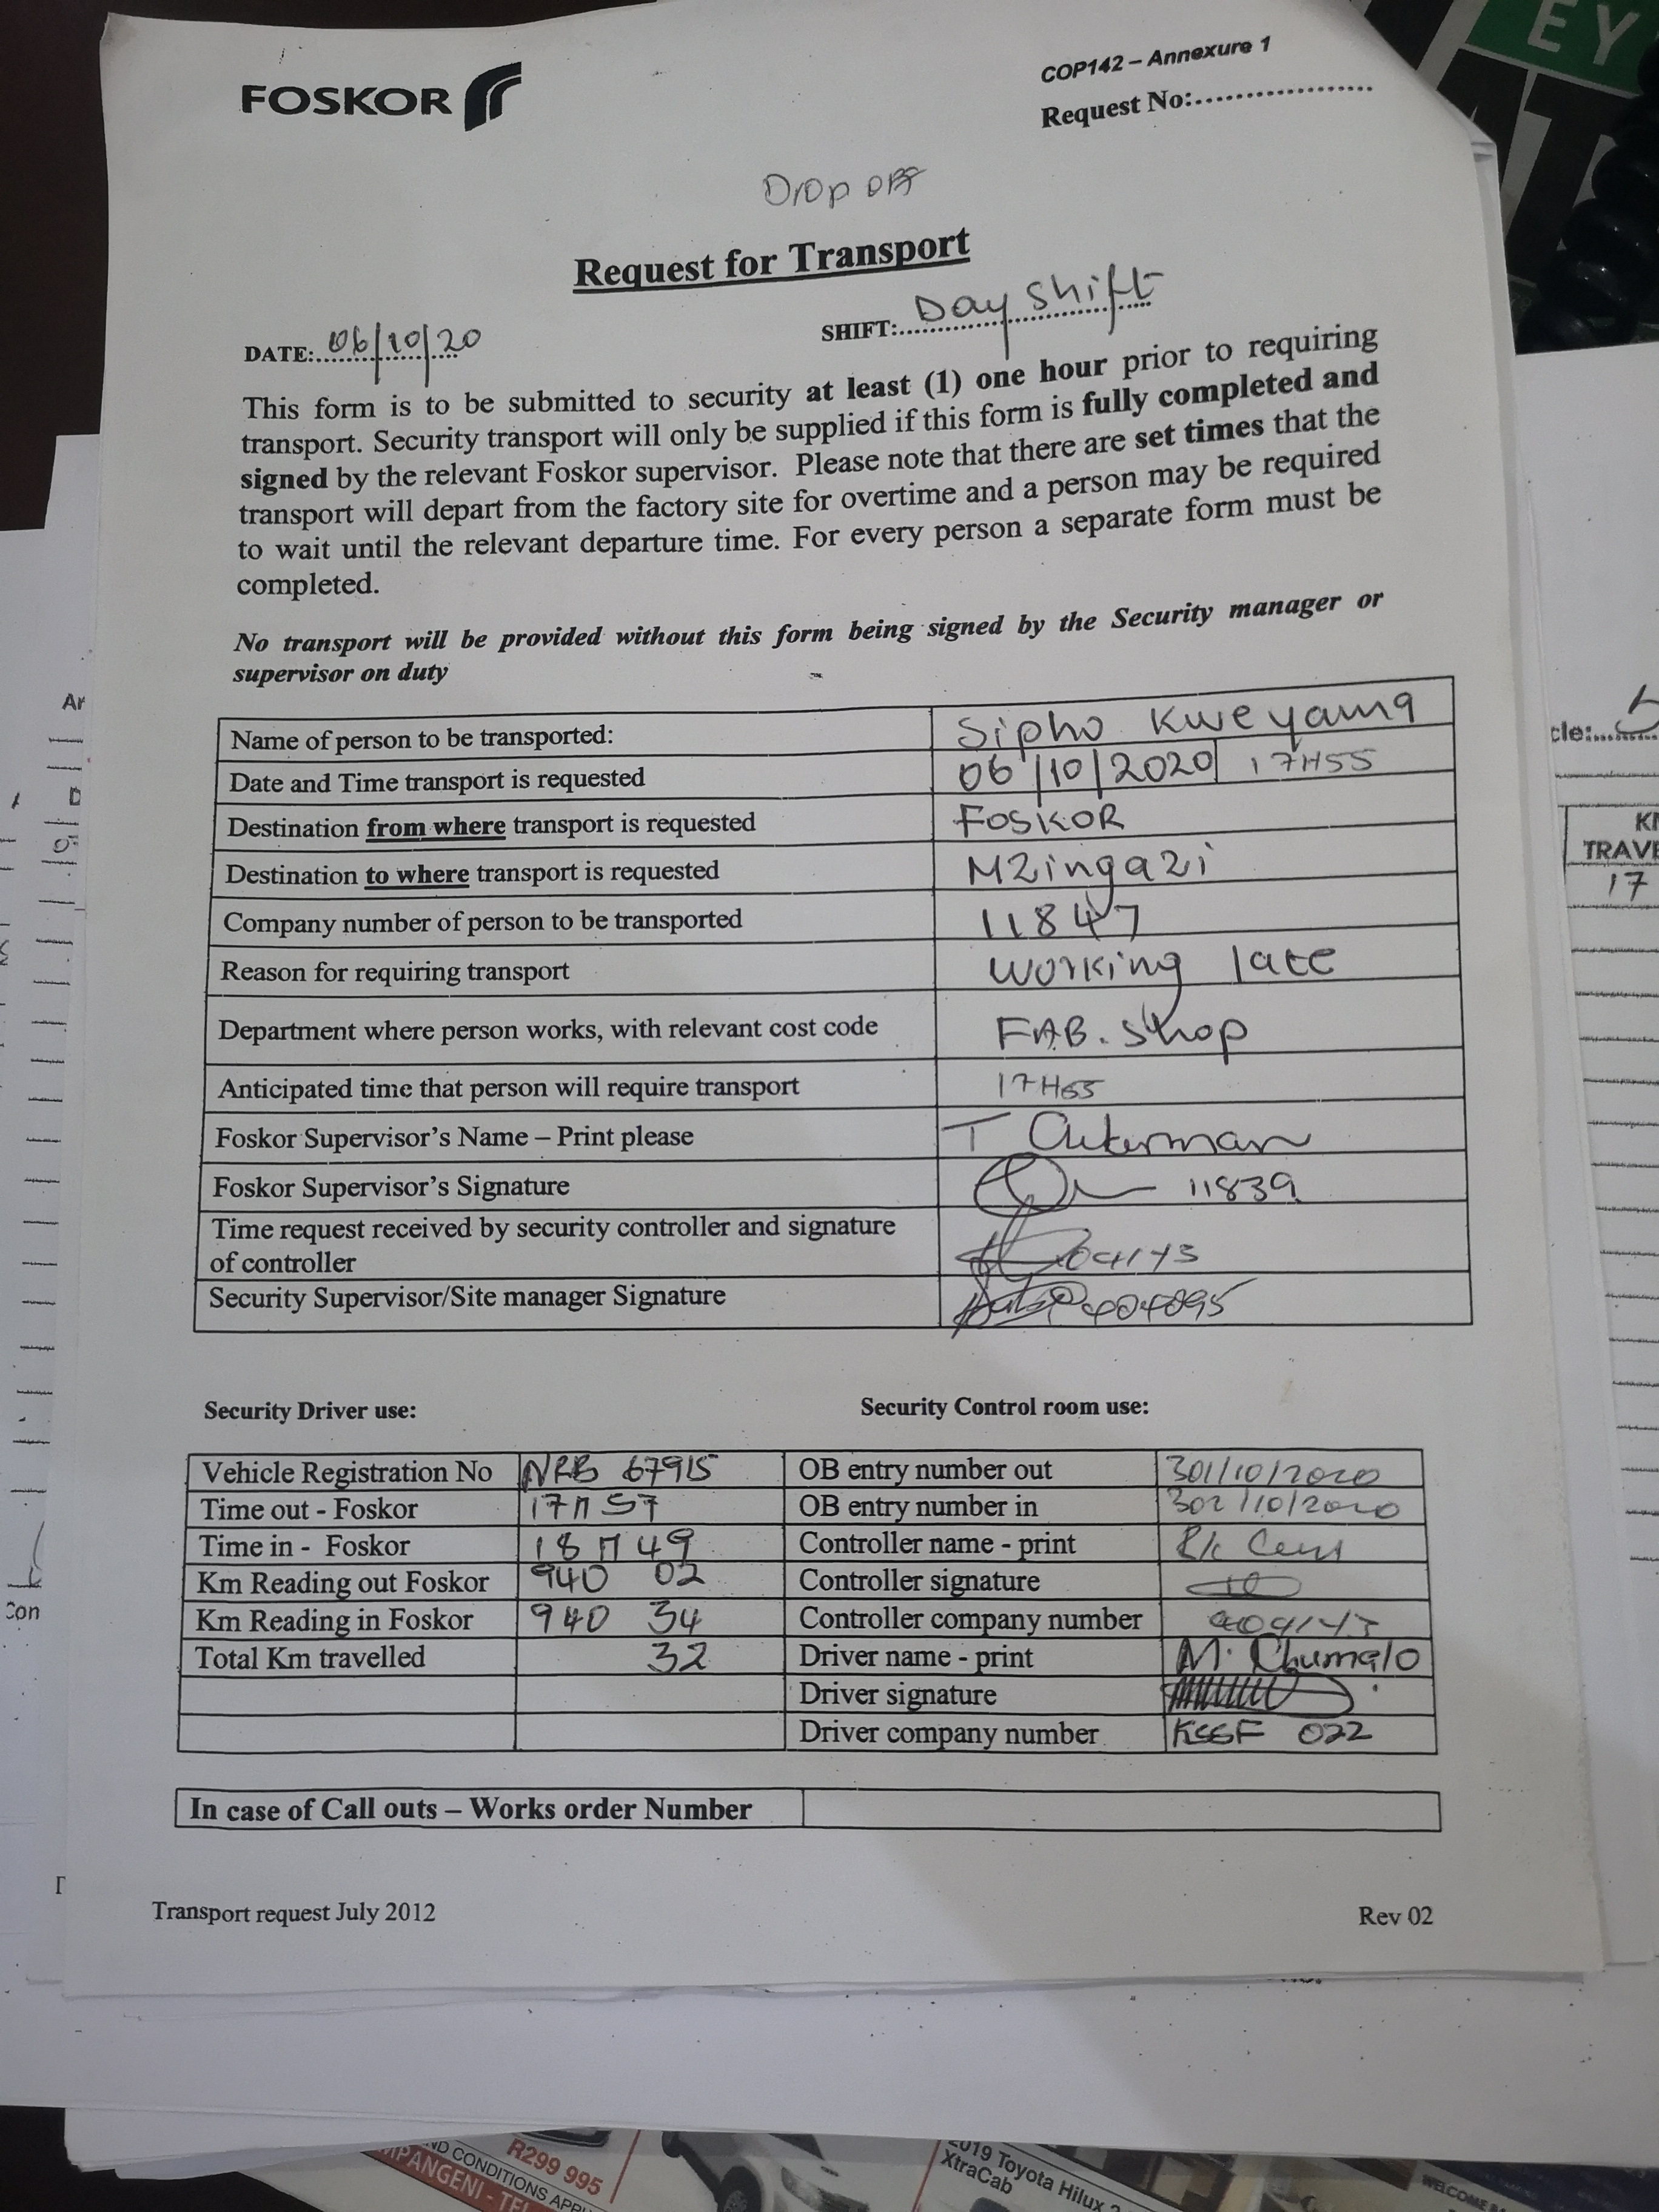 EY
FOSKOR
COP142 – Annexure 1
Request No:...................
Drop off
Request for Transport
DATE: 06/10/20
SHIFT: Day shift
This form is to be submitted to security at least (1) one hour prior to requiring
transport. Security transport will only be supplied if this form is fully completed and
signed by the relevant Foskor supervisor. Please note that there are set times that the
transport will depart from the factory site for overtime and a person may be required
to wait until the relevant departure time. For every person a separate form must be
completed.
No transport will be provided without this form being signed by the Security manager or
supervisor on duty
Name of person to be transported: Sipho Kweyama
Date and Time transport is requested 06/10/2020 17H55
Destination from where transport is requested FOSKOR
Destination to where transport is requested Mzingazi
Company number of person to be transported 11847
Reason for requiring transport working late
Department where person works, with relevant cost code FAB. Shop
Anticipated time that person will require transport 17H55
Foskor Supervisor's Name – Print please T Ackerman
Foskor Supervisor's Signature 11839
Time request received by security controller and signature
of controller
Security Supervisor/Site manager Signature
Security Driver use:
Security Control room use:
Vehicle Registration No NRB 67915 OB entry number out 301/10/2020
Time out - Foskor 17H57 OB entry number in 302/10/2020
Time in - Foskor 18H49 Controller name - print
Km Reading out Foskor 940 02 Controller signature
Km Reading in Foskor 940 34 Controller company number
Total Km travelled 32 Driver name - print M. Chumalo
Driver signature
Driver company number KSSF 022
In case of Call outs – Works order Number
Transport request July 2012
Rev 02
cle:
TRAVE
17
Con
R299 995
ND CONDITIONS
MPANGENI - TEL
2019 Toyota Hilux
XtraCab
WELCOME